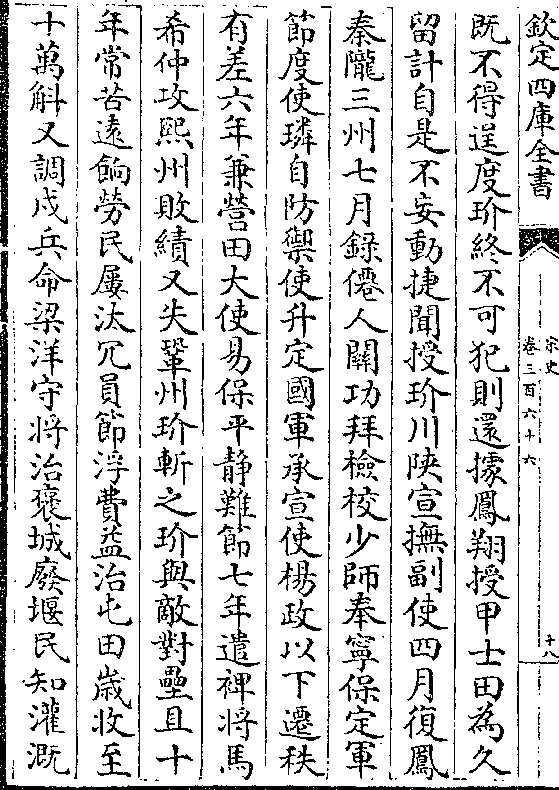 欽定四庫全書
宋史
卷三百六十六
十八
既不得逞度玠終不可犯則還據鳳翔授甲士田為久
留計自是不妄動捷聞授玠川陝宣撫副使四月復鳳
秦隴三州七月録僊人關功拜檢校少師奉寧保定軍
節度使璘自防禦使升定國軍承宣使楊政以下遷秩
有差六年兼營田大使易保平静難節七年遣裨將馬
希仲攻熙州敗績又失鞏州玠斬之玠與敵對壘且十
年常苦逺餉勞民屢汰冗員節浮費益治屯田嵗收至
十萬斛又調戍兵命梁洋守將治褒城廢堰民知灌溉